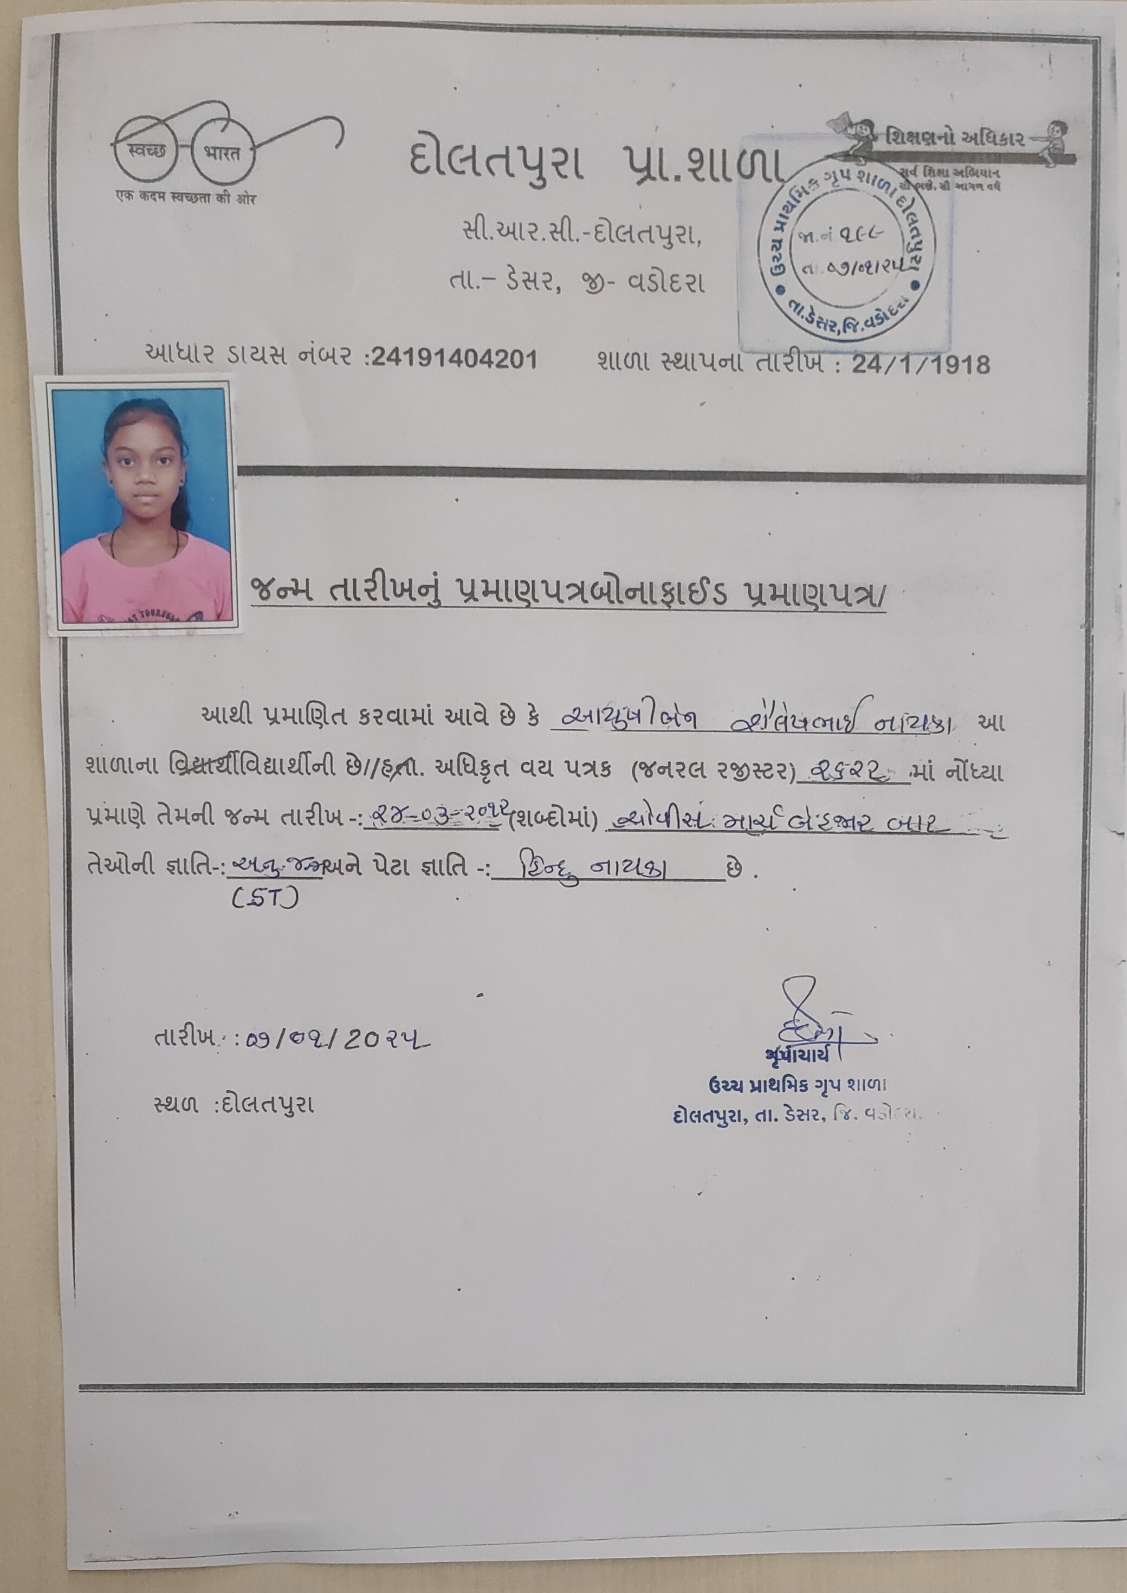 स्वच्छ भारत
एक कदम स्वच्छता की ओर
દોલતપુરા પ્રા.શાળા
શિક્ષણનો અધિકાર
સર્વ શિક્ષા અભિયાન
સૌ ભણે, સૌ આગળ વધે
સી.આર.સી.-દોલતપુરા,
તા.– ડેસર, જી- વડોદરા
ઉચ્ચ પ્રાથમિક ગૃપ શાળા દોલતપુરા
જા.નં ૧૯૯
તા. ૦૭/૦૧/૨૫
તા.ડેસર,જિ.વડોદરા
આધાર ડાયસ નંબર :24191404201 શાળા સ્થાપના તારીખ : 24/1/1918
જન્મ તારીખનું પ્રમાણપત્રબોનાફાઈડ પ્રમાણપત્ર/
આથી પ્રમાણિત કરવામાં આવે છે કે આયુષીબેન શૈલેષભાઈ નાયકા આ
શાળાના વિદ્યાર્થીવિદ્યાર્થીની છે//હતા. અધિકૃત વય પત્રક (જનરલ રજીસ્ટર) માં નોંધ્યા
પ્રમાણે તેમની જન્મ તારીખ -: ૨૪-૦૩-૨૦૧૨ (શબ્દોમાં) ચોવીસ માર્ચ બે હજાર બાર
તેઓની જ્ઞાતિ-: અનુ.જન અને પેટા જ્ઞાતિ -: હિન્દુ નાયકા છે .
(ST)
તારીખ : ૦૭/૦૧/20૨૫
સ્થળ :દોલતપુરા
આચાર્ય
ઉચ્ચ પ્રાથમિક ગૃપ શાળા
દોલતપુરા, તા. ડેસર, જિ. વડોદરા.